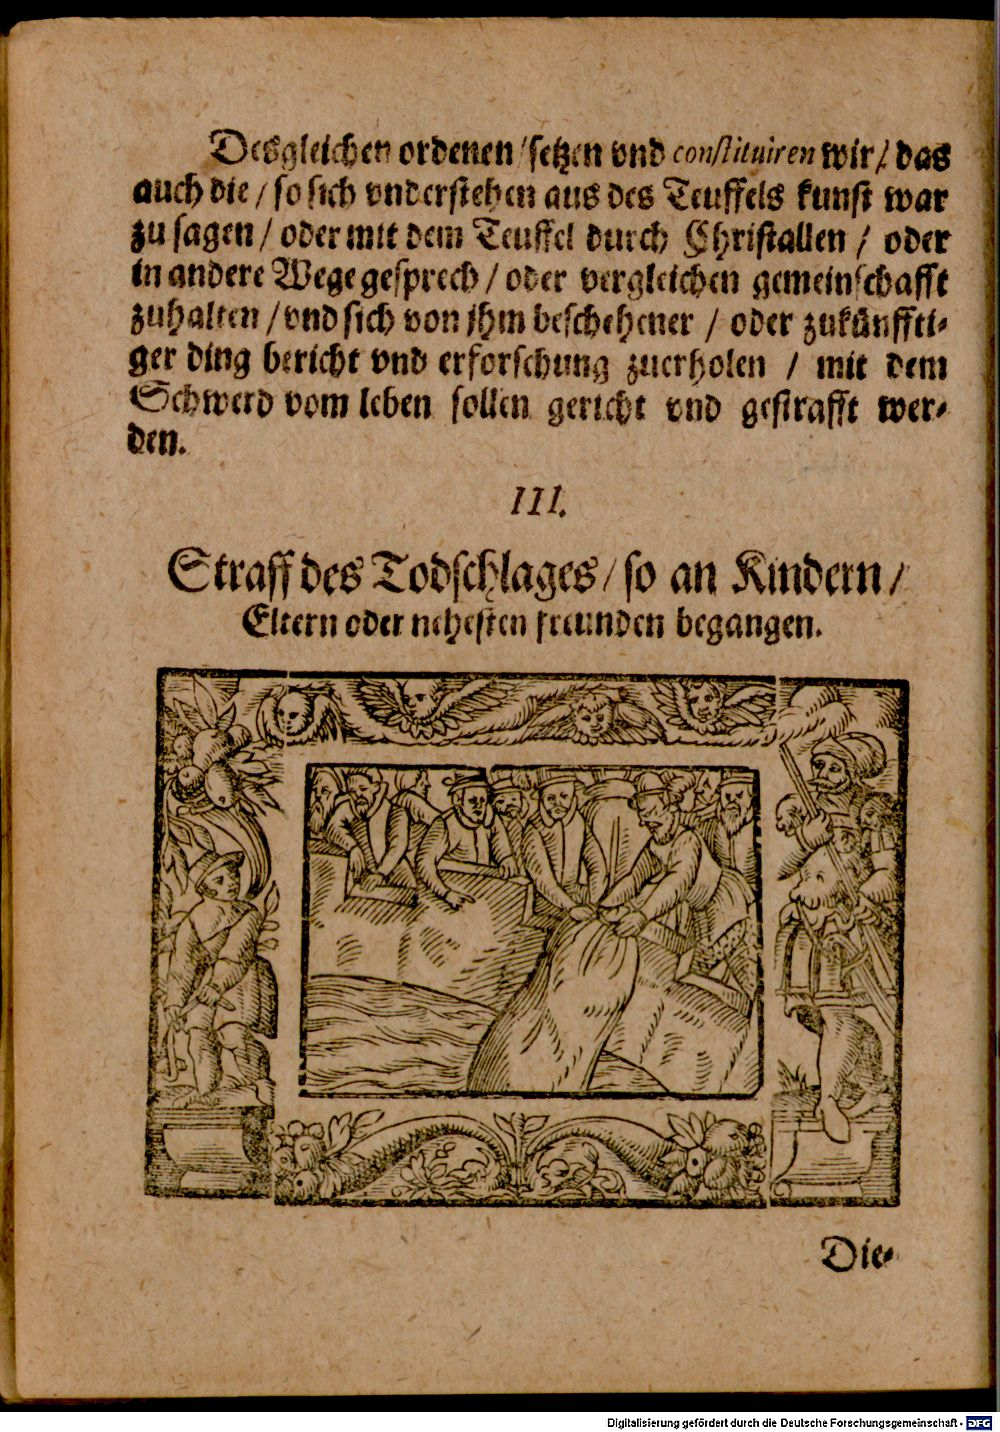 Desgleichen ordenen / setzen vnd constituiren wir / das
auch die / so sich vnderstehen aus des Teuffels kunst war
zu sagen / oder mit dem Teuffel durch Christallen / oder
in andere Wege gesprech / oder vergleichen gemeinschafft
zuhalten / vnd sich von jhm beschehener / oder zukünffti-
ger ding bericht vnd erforschung zuerholen / mit dem
Schwerd vom leben sollen gericht vnd gestrafft wer-
den.
III.
Straff des Todschlages / so an Kindern /
Eltern oder nehesten freunden begangen.
Die-
Digitalisierung gefördert durch die Deutsche Forschungsgemeinschaft - DFG